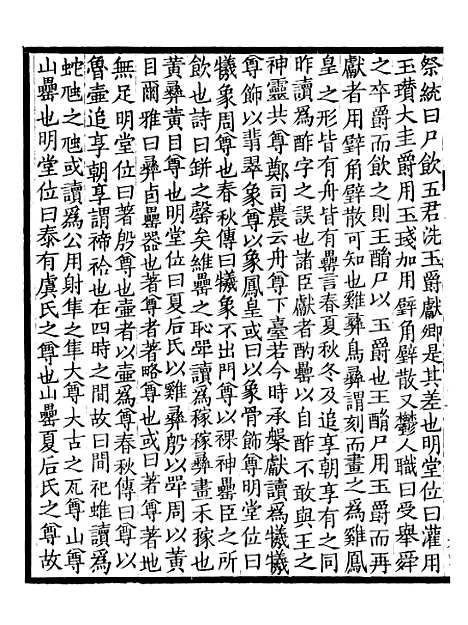 祭統曰尸飲五君洗玉爵獻卿是其差也明堂位曰灌用
玉瓚大圭爵用玉琖加用璧角璧散又鬱人職曰受舉斝
之卒爵而飲之則王酳尸以玉爵也王酳尸用玉爵而再
獻者用璧角璧散可知也雞彝鳥彝謂刻而畫之爲雞鳳
皇之形皆有舟皆有罍言春夏秋冬及追享朝享有之同
昨讀爲酢字之誤也諸臣獻者酌罍以自酢不敢與王之
神靈共尊鄭司農云舟尊下臺若今時承槃獻讀爲犧犧
尊飾以翡翠象尊以象鳳皇或曰以象骨飾尊明堂位曰
犧象周尊也春秋傳曰犧象不出門尊以祼神罍臣之所
飲也詩曰缾之罄矣維罍之恥斝讀爲稼稼彝畫禾稼也
黃彝黃目尊也明堂位曰夏后氏以雞彝殷以斝周以黃
目爾雅曰彝卣罍器也著尊者著略尊也或曰著尊著地
無足明堂位曰著殷尊也壺者以壺爲尊春秋傳曰尊以
魯壺追享朝享謂禘祫也在四時之間故曰間祀蜼讀爲
蛇虺之虺或讀爲公用射隼之隼大尊大古之瓦尊山尊
山罍也明堂位曰泰有虞氏之尊也山罍夏后氏之尊故